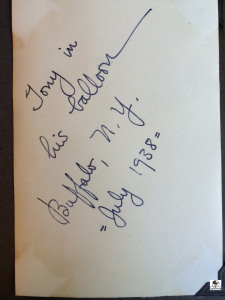 Tony in
his balloon
Buffalo, N.Y.
"July 1938"